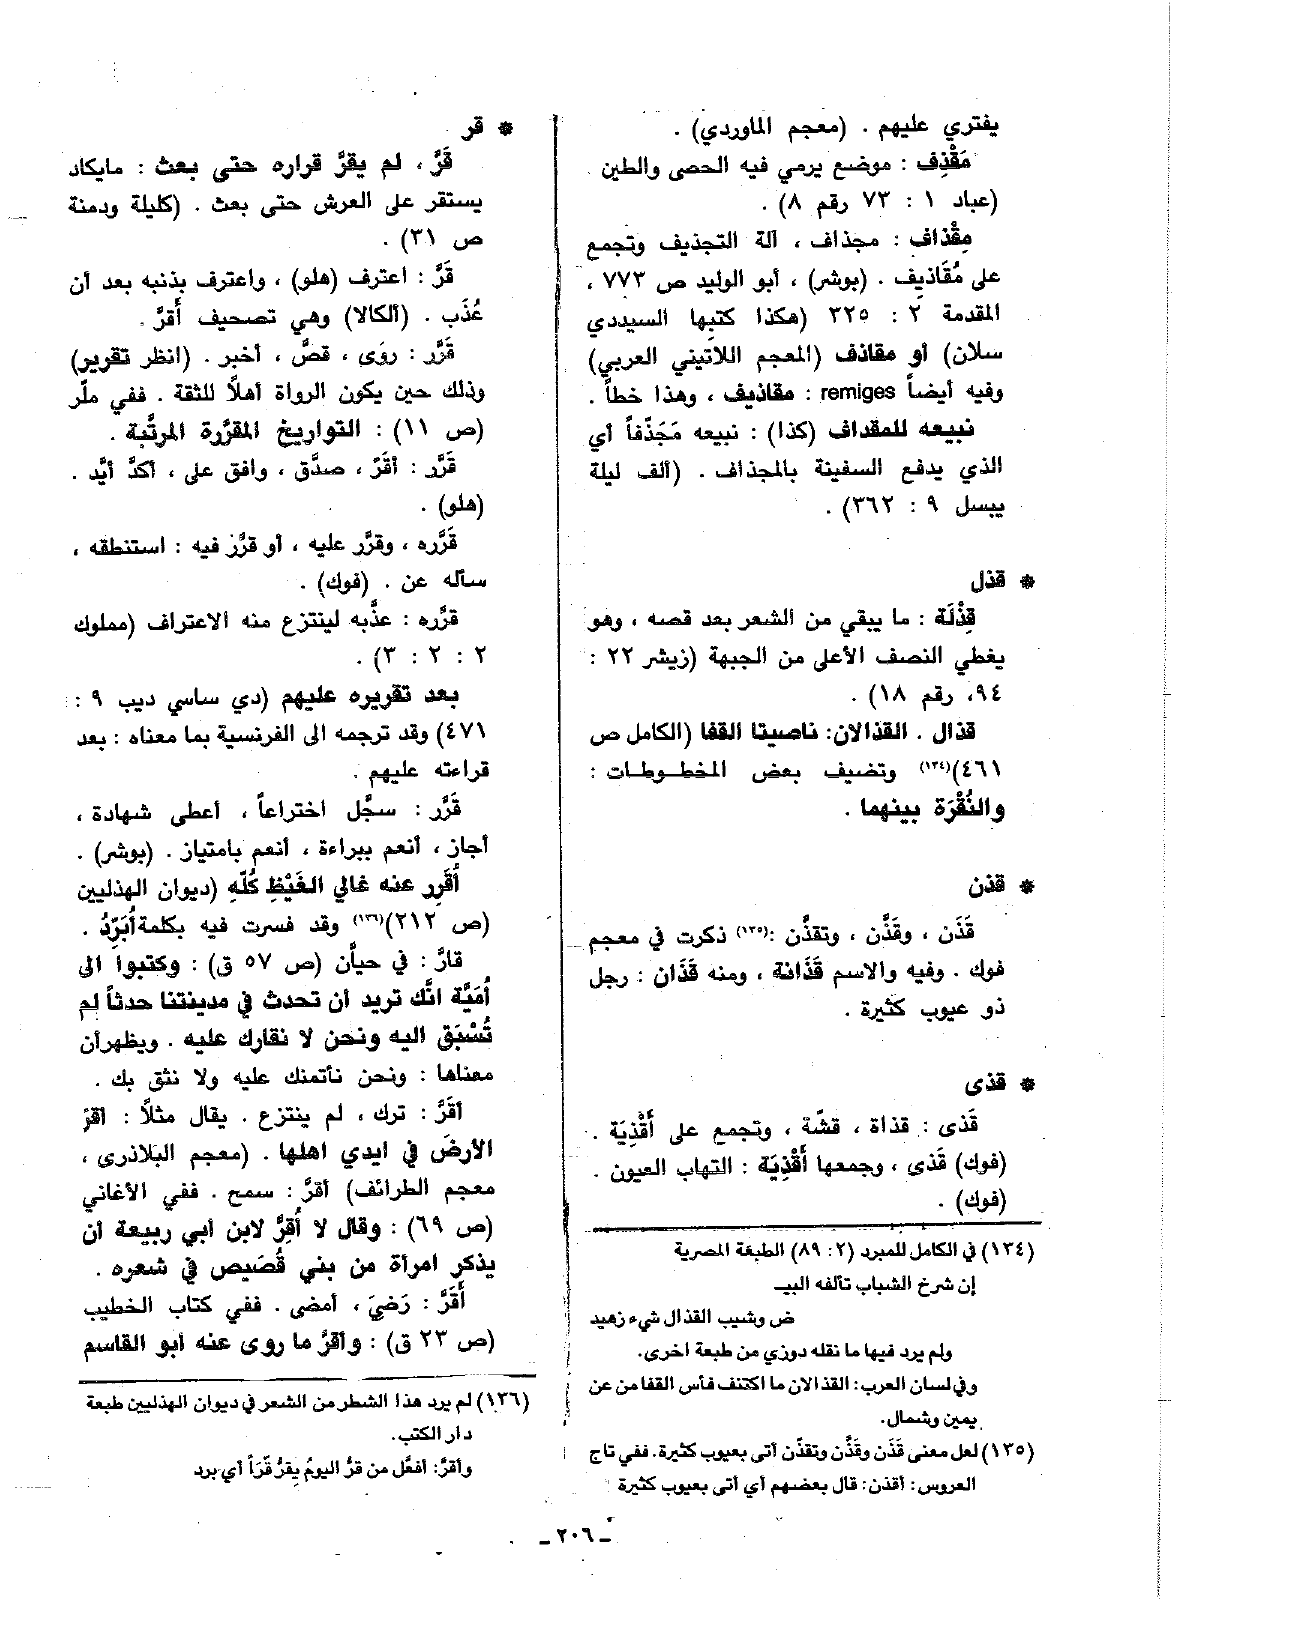 يفتري عليهم . (معجم الماوردي) .
مَقْذِف : موضع يرمي فيه الحصى والطين
(عباد ١ : ٧٣ رقم ٨) .
مِقْذاف : مجذاف ، آلة التجذيف وتجمع
على مُقَاذِيف . (بوشر) ، أبو الوليد ص ٧٧٣ ،
المقدمة ٢ : ٣٢٥ (هكذا كتبها السيددي
سلان) أو مقاذف (المعجم اللاتيني العربي)
وفيه أيضاً remiges : مقاذيف ، وهذا خطأ .
نبيعه للمقداف (كذا) : نبيعه مَجَذّفاً أي
الذي يدفع السفينة بالمجذاف . (ألف ليلة
يبسل ٩ : ٣٦٢) .
* قذل
قِذْلَة : ما يبقي من الشعر بعد قصه ، وهو
يغطي النصف الأعلى من الجبهة (زيشر ٢٢ :
٩٤، رقم ١٨) .
قذال . القذالان: ناصيتا القفا (الكامل ص
٤٦١)(١٣٤) وتضيف بعض المخطوطات :
والنُقْرَة بينهما .
* قذن
قَذَن ، وقَذَّن ، وتقذَّن :(١٣٥) ذكرت في معجم
فوك . وفيه والاسم قَذَانة ، ومنه قَذَان : رجل
ذو عيوب كثيرة .
* قذى
قَذى : قذاة ، قشّة ، وتجمع على أَقْذِيَة .
(فوك) قَذى ، وجمعها أَقْذِيَة : التهاب العيون .
(فوك) .
(١٣٤) في الكامل للمبرد (٢: ٨٩) الطبعة المصرية
إن شرخ الشباب تألفه البيـ
ض وشيب القذال شيء زهيد
ولم يرد فيها ما نقله دوزي من طبعة اخرى.
وفي لسان العرب: القذالان ما اكتنف فأس القفا من عن
يمين وشمال.
(١٣٥) لعل معنى قَذَن وقَذَّن وتقذّن أتى بعيوب كثيرة. ففي تاج
العروس: أقذن: قال بعضهم أي أتى بعيوب كثيرة
* قر
قَرَّ ، لم يقرَّ قراره حتى بعث : مايكاد
يستقر على العرش حتى بعث . (كليلة ودمنة
ص ٣١) .
قَرَّ : اعترف (هلو) ، واعترف بذنبه بعد أن
عُذَب . (ألكالا) وهي تصحيف أَقرَّ .
قَرَّر : روَى ، قصَّ ، أخبر . (انظر تقرير)
وذلك حين يكون الرواة أهلاً للثقة . ففي ملّر
(ص ١١) : التواريخ المقرَّرة المرتَّبة .
قَرَّر : أقَرَّ ، صدَّق ، وافق على ، أكدَّ أيَّد .
(هلو) .
قَرَّره ، وقرَّر عليه ، أو قرَّر فيه : استنطقه ،
سأله عن . (فوك) .
قرَّره : عذَّبه لينتزع منه الاعتراف (مملوك
٢ : ٢ : ٣) .
بعد تقريره عليهم (دي ساسي ديب ٩ :
٤٧١) وقد ترجمه الى الفرنسية بما معناه : بعد
قراءته عليهم .
قَرَّر : سجَّل اختراعاً ، أعطى شهادة ،
أجاز ، أنعم ببراءة ، أنعم بامتياز . (بوشر) .
أُقَرر عنه غالي الغَيْظِ كُلّهِ (ديوان الهذليين
(ص ٢١٢)(١٣٦) وقد فسرت فيه بكلمة أُبَرِّدُ .
قارَّ : في حيأن (ص ٥٧ ق) : وكتبوا الى
أُمَيَّة انَّك تريد أن تحدث في مدينتنا حدثاً لم
تُسْبَق اليه ونحن لا نقارك عليه . ويظهرأن
معناها : ونحن نأتمنك عليه ولا نثق بك .
أقَرَّ : ترك ، لم ينتزع . يقال مثلاً : أقرّ
الأرضَ في ايدي اهلها . (معجم البلاذرى ،
معجم الطرائف) أقرَّ : سمح . ففي الأغاني
(ص ٦٩) : وقال لا أُقِرُّ لابن أبي ربيعة أن
يذكر امرأة من بني قُصَيص في شعره .
أَقَرَّ : رَضيَ ، أمضى . ففي كتاب الخطيب
(ص ٢٣ ق) : وأقرَّ ما روى عنه أبو القاسم
(١٣٦) لم يرد هذا الشطر من الشعر في ديوان الهذليين طبعة
دار الكتب.
وأقرَّ: أفعَّل من قرَّ اليومُ يقِرُّ قَرَاً أي برد
ـ ٢٠٦ ـ